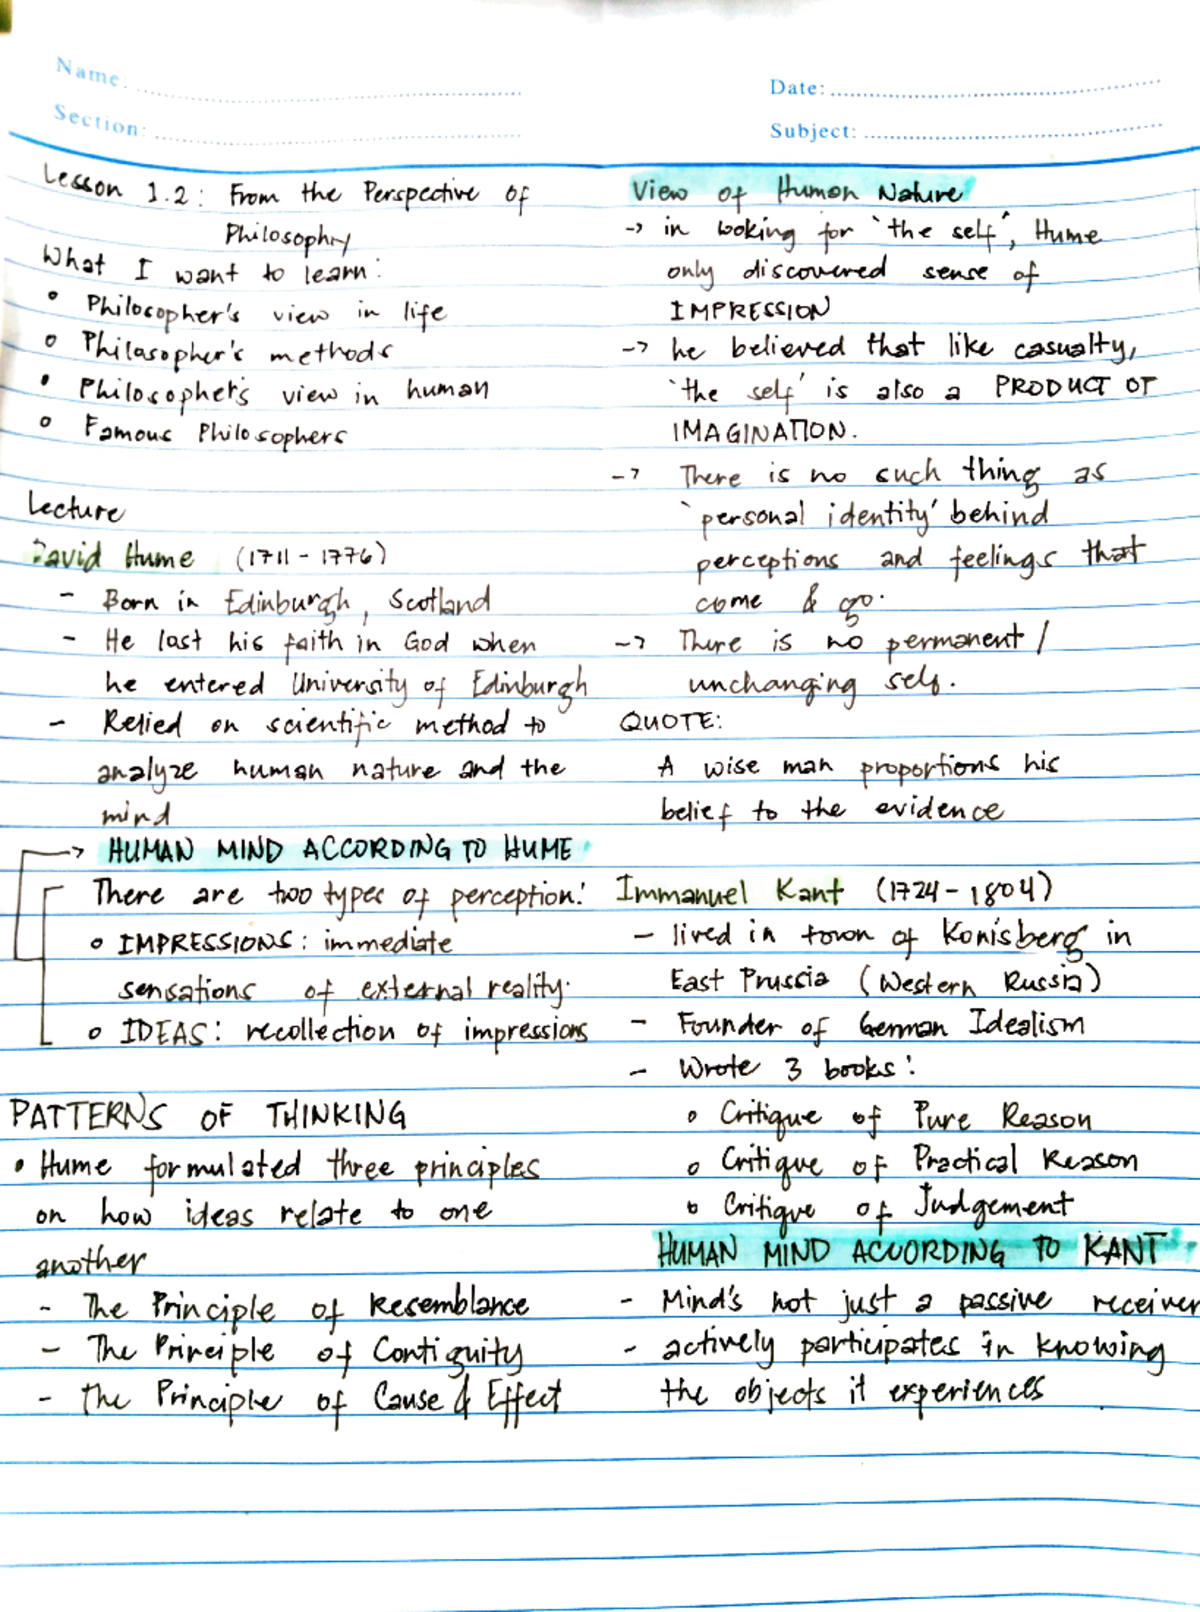 Name:
Section:
Date:
Subject:
Lesson 1.2: From the Perspective of
Philosophy
What I want to learn:
• Philosopher's view in life
• Philosopher's methods
• Philosopher's view in human
• Famous Philosophers
Lecture
David Hume (1711 - 1776)
- Born in Edinburgh, Scotland
- He lost his faith in God when
he entered University of Edinburgh
- Relied on scientific method to
analyze human nature and the
mind
→ HUMAN MIND ACCORDING TO HUME
There are two types of perception:
• IMPRESSIONS: immediate
sensations of external reality.
• IDEAS: recollection of impressions
PATTERNS OF THINKING
• Hume formulated three principles
on how ideas relate to one
another
- The Principle of Resemblance
- The Principle of Contiguity
- The Principle of Cause & Effect
View of Human Nature
-> in looking for 'the self', Hume
only discovered sense of
IMPRESSION
-> he believed that like casualty,
'the self' is also a PRODUCT OF
IMAGINATION.
-> There is no such thing as
'personal identity' behind
perceptions and feelings that
come & go.
-> There is no permanent /
unchanging self.
QUOTE:
A wise man proportions his
belief to the evidence
Immanuel Kant (1724 - 1804)
- lived in town of Konisberg in
East Prussia (Western Russia)
- Founder of German Idealism
- Wrote 3 books:
• Critique of Pure Reason
• Critique of Practical Reason
• Critique of Judgement
HUMAN MIND ACCORDING TO KANT
- Mind's not just a passive receiver
- actively participates in knowing
the objects it experiences